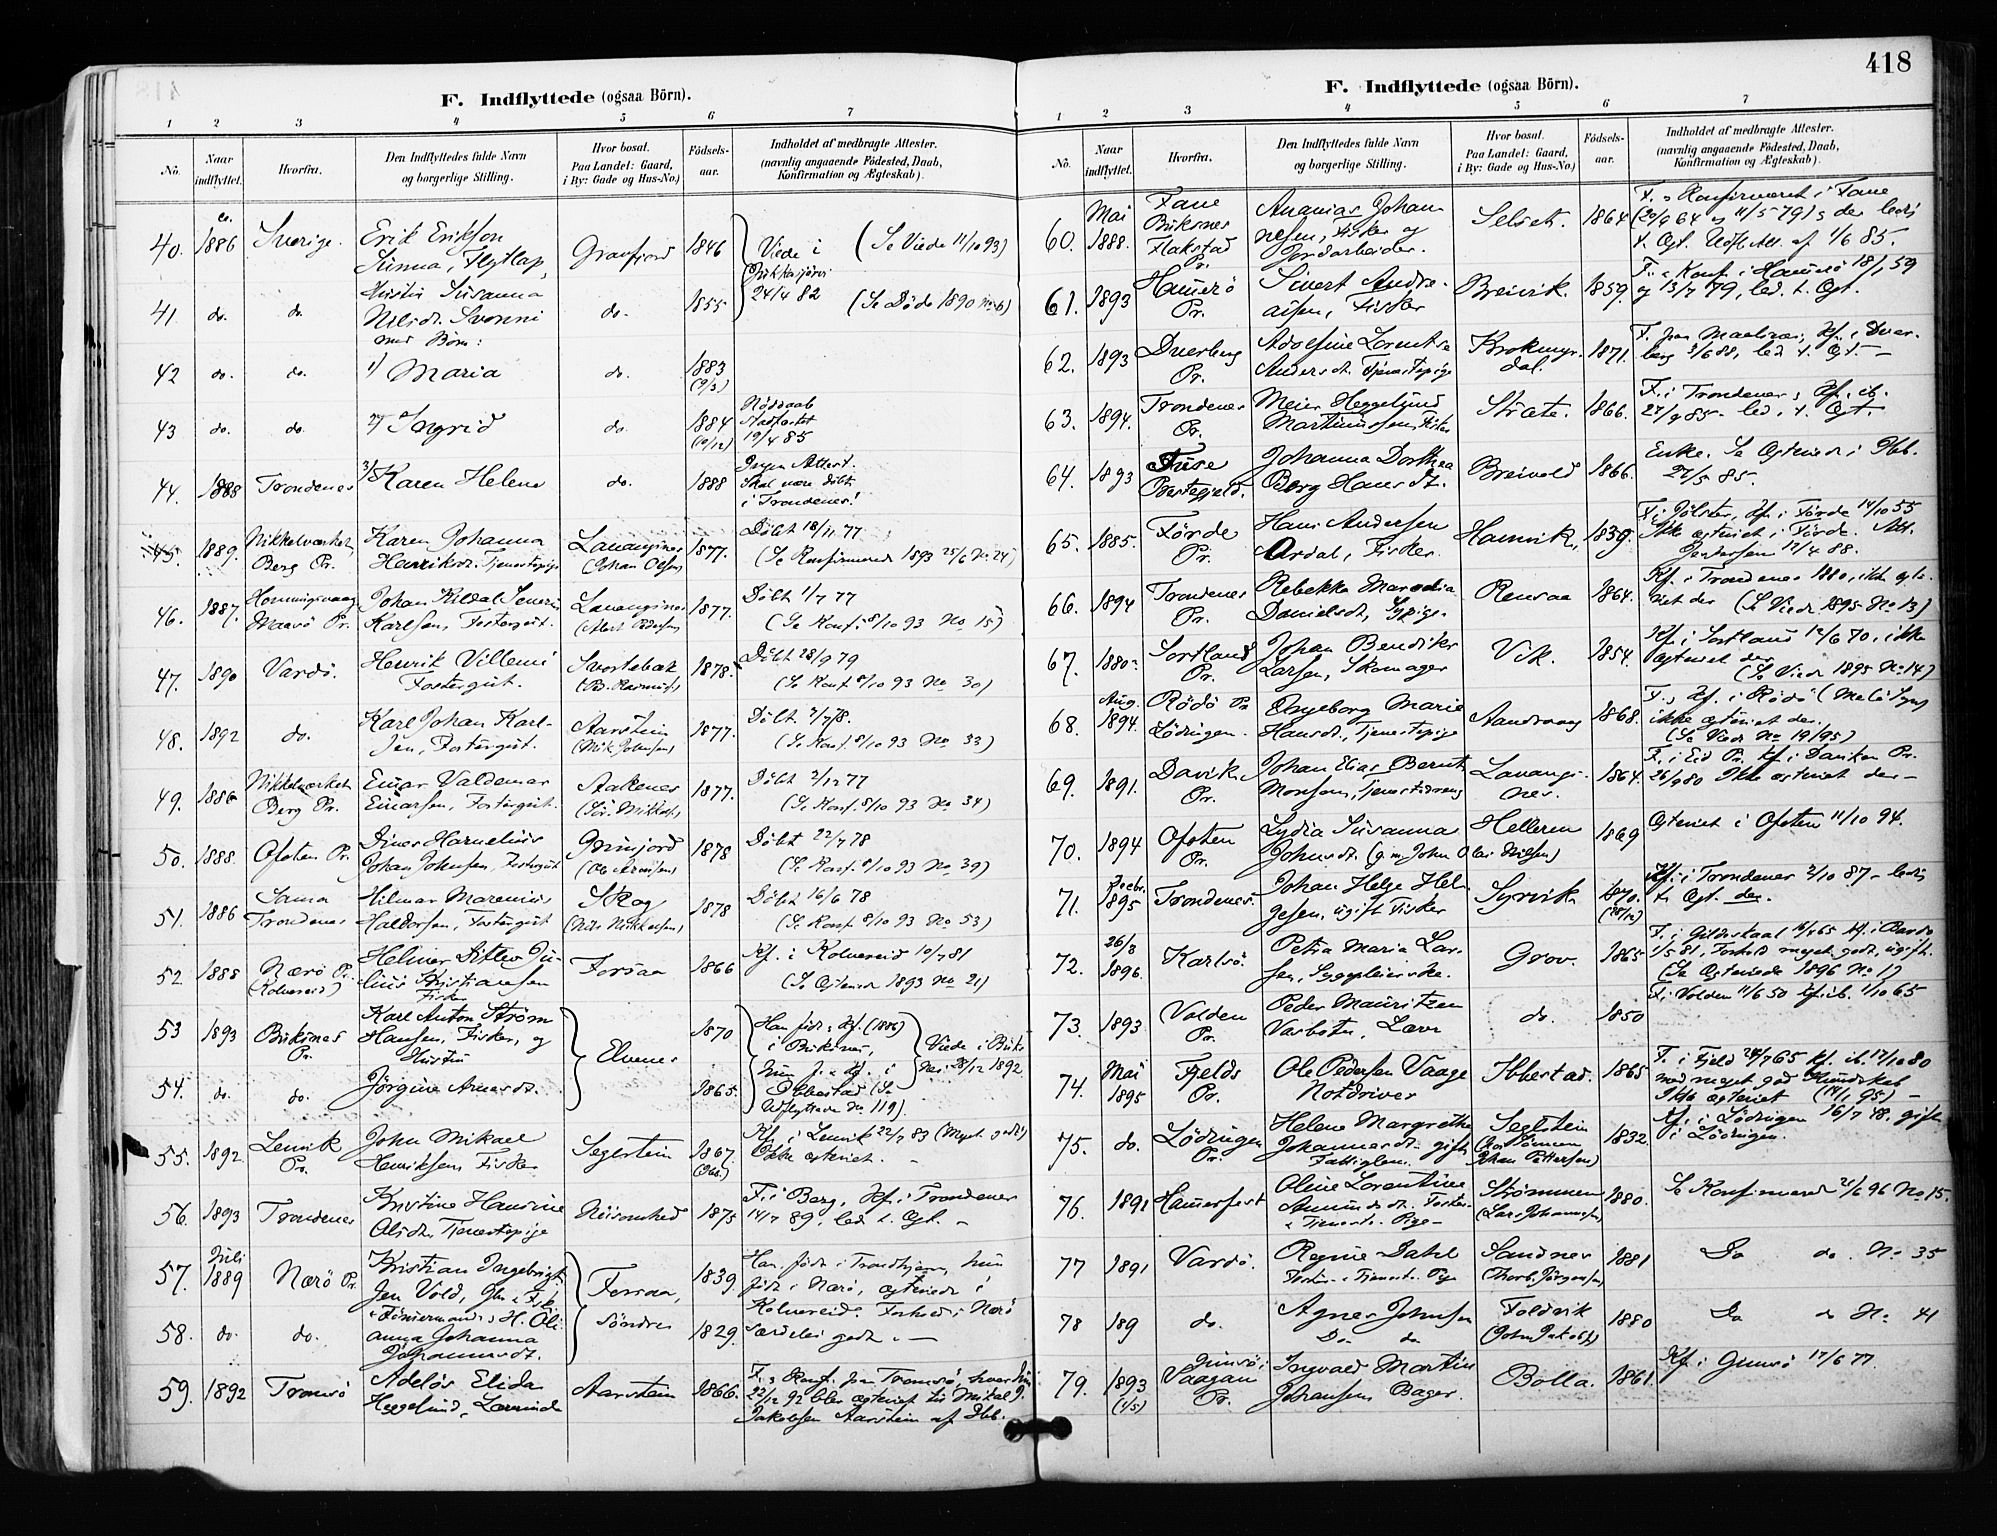 418
F. Indflyttede (ogsaa Börn).
1 2 3 4 5 6 7
No. Naar indflyttet. Hvorfra. Den Indflyttedes fulde Navn og borgerlige Stilling. Hvor bosat. Paa Landet: Gaard, i By: Gade og Hus-No.) Födsels-aar. Indholdet af medbragte Attester. (navnlig angaaende Födested, Daab, Konfirmation og Ægteskab).
40. 1886 Sverige. Erik Erikson
Gravfjord 1846 Viede i (Se Viede 11/10 93)
24/4 82
41 do. do. Hustru Susanna
Nilsdr. do. 1855 (Se Døde 1890 No 6)
med Börn:
42 do. do. 1) Maria do. 1883
(9/3)
43 do. do. 2) Ingrid do. 1884
(10/12)
Nöddaab
Stadfæstet
19/4 85
44. 1888 Trondenes 3) Karen Helene do. 1888 Ingen Attest.
Skal være döbt
i Trondenes!
45. 1889. Nikkelværket Karen Johanna 1877. Döbt 18/11 77
Berg Pr. Henriksdr. Tjenestepige (Johan Olsen) (Se Konfirmerede 1893 25/6 No 24)
46. 1887. Honningsvaag Johan Kildal Severin Lavangsnes 1877. Döbt 1/7 77
Maasö Pr. Karlsen, Fostergut. (Se Konf. 8/10 93 No 15)
47. 1890 Vardö. Henrik Villemi 1878. Döbt 28/9 79
Fostergut. (Se Konf. 8/10 93 No 30)
48. 1892 do. Karl Johan Karl- Aarstein 1877. Döbt
sen, Fostergut. (Se Konf. 8/10 93 No 33)
49. 1886 Nikkelværket Einar Valdemar 1877. Döbt 2/12 77
Berg Pr. Einarsen, Fostergut. (Se Konf. 8/10 93 No 34)
50. 1888. Ofoten Pr. 1878 Döbt 22/7 78
Johan Johnsen, Fostergut (Se Konf. 8/10 93 No 39)
51. 1886 Trondenes Hilmar Marenius Skog 1878 Döbt 16/6 78
Haldorsen, Fostergut (Nils Mikkelsen) (Se Konf. 8/10 93 No 53)
52. 1888 Nærö Pr. Forsaa 1866 Kf. i Kolvereid 10/7 81
(Kolvereid) Kristiansen (Se Ægteviede 1893 No 21)
Fisker
53 1893 Buksnes Karl Anton Ström 1870 Han föd, Kf. (1886)
Pr. Hansen, Fisker, og Elvenes i Buksnes, Viede i Buks
Hustru nes 28/12 1892
54. do. do. Jörgine 1865. Ibbestad (Se
Udflyttede No 119).
55. 1892. Lenvik John Mikael Segelstein 1867. Kf. i Lenvik 22/7 83 (Meget godt)
Pr. Henriksen Fisker Ikke ægteviet.
56. 1893 Trondenes Kristine Hansine Nöisomhed 1875 F. i Berg, Kf. i Trondenes
Olsdr. Tjenestepige 14/7 89, led. t. Ægt.
57. Juli
1889 Nærö Pr. Kristian Ingebrigt- Forsaa, 1839. Han föd i Trondhjem, hun
sen Vold, föd i Nærö, ægteviede i
58. do. do. Tömmermand, H. Oli- Söndre 1829. Kolvereid. Forhold i Nærö
anna Johanna særdeles godt.
Johannesdr.
59. 1892 Tromsö Elida Aarstein 1866. F. Konf. fra Tromsö, hvor hun
Heggelund, 22/12 92 blev ægteviet til Mikal
Jakobsen Aarstein af Ibb.
F. Indflyttede (ogsaa Börn).
1 2 3 4 5 6 7
No. Naar indflyttet. Hvorfra. Den Indflyttedes fulde Navn og borgerlige Stilling. Hvor bosat. Paa Landet: Gaard, i By: Gade og Hus-No.) Födsels-aar. Indholdet af medbragte Attester. (navnlig angaaende Födested, Daab, Konfirmation og Ægteskab).
60. Mai
1888. Buksnes Ananias Johan- Selset. 1864 F. Konfirmeret i
Flakstad nesen, Fisker og
Pr. Jordarbeider. t. Ægt. Udfl. Att. af 1/6 85.
61. 1893 Hamerö Sivert Andre- Breivik. 1859. F. Konf. i Hamerö 18/1 59
Pr. asen, Fisker og 13/7 79, led. t. Ægt.
62. 1893 Dverberg Adolfine Lorentse 1871. F. paa Maalsnes, Kf. i Dver-
Pr. Andersdr. Tjenestepige dal. berg 3/6 88, led. t. Ægt.
63. 1894. Trondenes Meier Heggelund 1866. F. i Trondenes, Kf. ib.
Pr. Martinussen, Fisker 27/9 85. led. t. Ægt.
64. 1893 Fuse Johanna Dorthea Breivold 1866. Enke. Se Ægteviede i Ibb.
Prestegjeld. Berg Hansdr. 27/5 85.
65. 1885. Förde Hans Andersen Hamvik, 1839. F. i Jölster, Kf. i Förde 14/10 55
Pr. Årdal, Fisker. Ikke ægteviet i Förde. Att.
17/4 88.
66. 1894 Trondenes Rebekka Rensaa 1864. Kf. i Trondenes 1880, ikke ægte-
Pr. Danielsdr. Sypige. viet der (Se Viede 1895 No 13)
67. 1880 Sortland Johan Bendiks Vik. 1854. Kf. i Sortland 12/6 70, ikke
Pr. Larsen, Skomager ægteviet der
(Se Viede 1895 No 14)
68. Aug.
1894. Rödö Pr. Ingeborg Marie 1868. F., Kf. i Rödö
Lödingen. Hansdr., Tjenestepige ikke ægteviet der.
(Se Viede No 19/95)
69. 1891. Davik Johan Elias Bernt Lavangs- 1864. F. i Eid Pr. Kf. i Daviken Pr.
Pr. Monsen, Tjenestedreng nes. 26/9 80 Ikke ægteviet der
70. 1894 Ofoten Lydia Susanna Helleren 1869 Ægteviet i Ofoten 11/10 94.
Pr. Johnsdr. (g. m. John Olai Nilsen)
71. Decbr.
1895 Trondenes Johan Helge Hel- Syrvik 1870. Kf. i Trondenes 2/10 87 ledig
gesen, ugift Fisker t. Ægt. der.
72. 26/3
1896. Karlsö. Petra Maria Lar- Grov. 1865
sen, Sygepleierske. 1/5 81, Forhold meget godt, ugift.
(Se Ægteviede 1896 No 1)
73. 1893 Volden Peder Mauritzen do. 1850 F. i Volden 11/6 50 Kf. ib. 1/10 65
Pr. Varbotn,
74. Mai
1895 Fjelds Ole Pedersen Vaage Ibbestad. 1865 F. i Fjeld 24/7 65 Kf. ib 17/10 80
Pr. Notdriver med meget god Kundskab
Ikke ægteviet (14/1 95)
75. do. Lödingen Helene Margrethe Segelstein 1832. Kf. i Lödingen 16/7 48. gift
Pr. Johannesdr. gift i Lödingen.
Fattiglem. Johan Pettersen)
76. 1891 Hamerfest Oline Lorentine Strömmen 1880. Se Konfirmerede 21/6 96 No 15.
Amundsdr. Foster- (Lars Johannesen)
& Tjeneste-Pige
77 1891 Vardö. Regine Dahl Sandnes 1881 Do do. No 35
Foster- & Tjeneste-Pige (Thorb. Jörgensen)
78 189 do. Agnes Johnsen Foldvik 1880 Do do No 41
Do do (John Jakobs.)
79. 1893
(1/5) Gimsö i
Vaagan Ingvald Martin Bolla. 1861. Kf. i Gimsö 17/6 77.
Pr. Johansen, Bager.